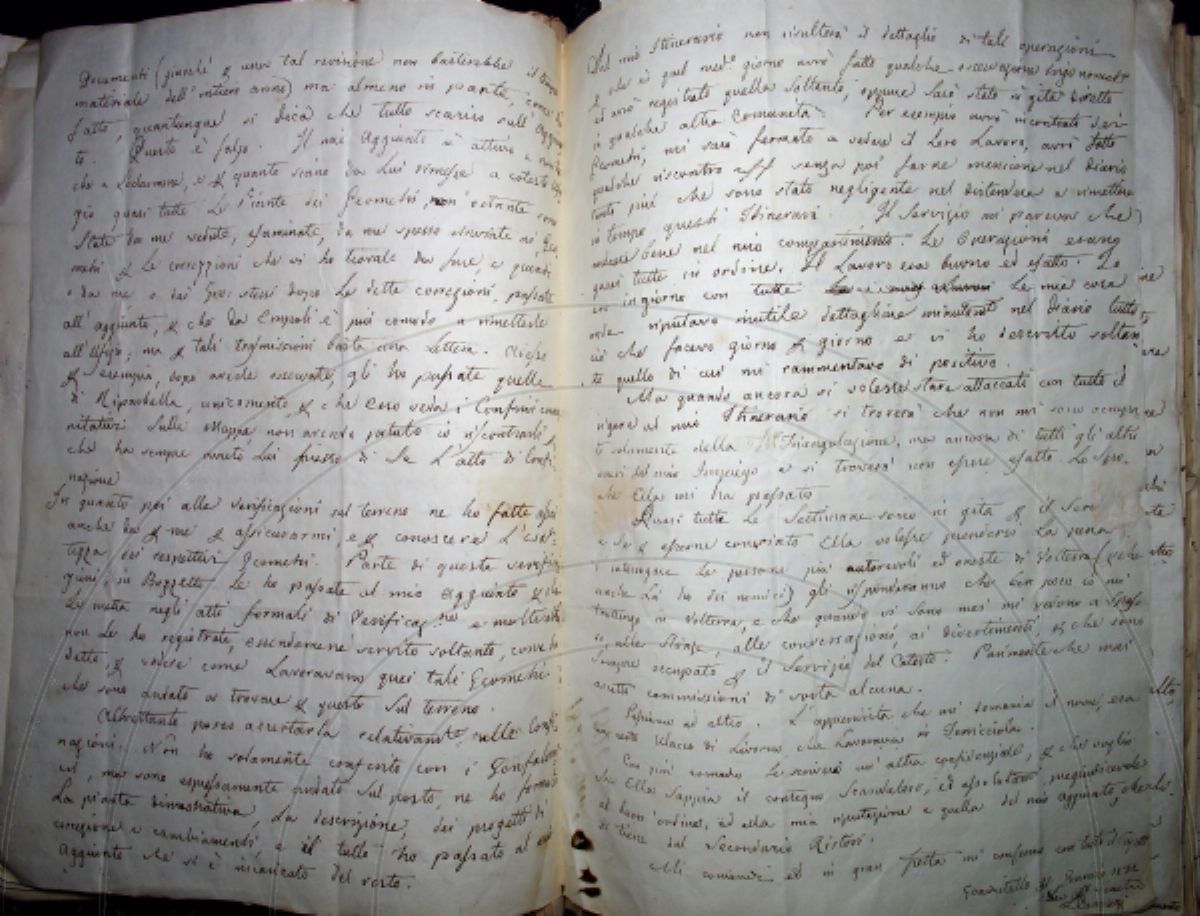 Documenti (giacché p. una tal revisione non basterebbe il tempo
materiale dell'intiero anno) ma almeno in parte, come ho
fatto, quantunque si dica che tutto scarico sull'Aggiun
to. Questo è falso. Il mio Aggiunto è attivo e
che a Lodarmene, e p. quanto siano da Lui rimesse a cotesto
gio quasi tutte Le Piante dei Geometri, non ostante sono
State da me vedute, esaminate, da me spesso osservate ai Geo
metri p. Le correzzioni che vi ho trovate da fare, e quindi
o da me o dai Geo: stessi dopo Le dette correzioni, passate
all'aggiunto, p. che da Empoli è più comodo a rimetterle
all'Uffizio; ma p. tali trasmissioni basta una Lettera. Così
p. esempio, dopo averle osservate, gli ho passate quelle
di Riparbella, unicamente p. che Esso veda i Confini
nitativi sulle Mappe non avendo potuto io riscontrarli,
che ha sempre avuto Lui presso di Se L'atto di Confi
nazione
In quanto poi alle verificazioni sul terreno ne ho fatte
anche da p. me p. assicurarmi e p. conoscere L'esat
tezza dei respettivi Geometri. Parte di queste verifica
zioni, in Bozzette Le ho passate al mio aggiunto p. che
Le metta negli atti formali di Verificaz.ne e molte
non Le ho registrate, essendomene servito soltanto, come ho
detto, p. vedere come Lavoravano quei tali Geometri
che sono andato a trovare p. questo sul terreno.
Altrettanto posso accertarla relativam.te alle Confi
nazioni. Non ho solamente conferito con i Gonfalon
ieri, ma sono espressamente andato sul posto, ne ho formato
La pianta dimostrativa, La descrizione, dei progetti di
correzione e cambiamenti e il tutto ho passato al mio
Aggiunto che si è incaricato del resto.
Dal mio Itinerario non risulterà il dettaglio di tali operazioni
p. che in quel med.o giorno avrò fatto qualche
ed avrò registrato quella soltanto, oppure sarò stato in gita diretto
in qualche altra Comunità. Per esempio avrò incontrati dei
Geometri, mi sarò fermato a vedere il Loro Lavoro, avrò fatto
qualche riscontro senza poi farne menzione nel Diario
tanto più che sono stato negligente nel distendere e rimettere
in tempo questi Itinerari. Il Servizio mi pareva che
andasse bene nel mio compartimento. Le Operazioni erano
quasi tutte in ordine. Il Lavoro era buono ed esatto. Io
ero in giorno con tutte Le mie cose
onde reputavo inutile dettagliare minutam.te nel Diario tutto
ciò che facevo giorno p. giorno e vi ho descritto soltan
to quello di cui mi rammentavo di positivo.
Ma quando ancora si volesse stare attaccati con tutto il
rigore al mio Itinerario si troverà che non mi sono occupa
to solamente della Triangolazione, ma ancora di tutti gli altri
oneri del mio Impiego e si troverà non essere esatto Lo
che Ella mi ha passato
Quasi tutte Le Settimane sono in gita p. il Serv.
e se p. esserne convinto Ella volesse prendersi La pena
d'interrogare Le persone più autorevoli ed oneste di Volterra (
anche Là ho dei nemici) gli risponderanno che ben poco io mi
trattengo in Volterra, e che quando vi sono mai mi vedono a spasso
so, nelle Strade, alle conversazioni, ai divertimenti, p. che sono
Sempre occupato p. il Servizio del Catasto. Parimente che mai
accetto commissioni di sorta alcuna.
Passiamo ad altro. L'apprendista che mi domanda il nome, era
di Livorno che Lavorava in
Con più comodo Le scriverò un'altra confidenziale, p. che voglio
che Ella sappia il contegno Scandaloso, ed assolutam. pregiudicevole
al buon'ordine, ed alla mia riputazione e quella del mio aggiunto, che
si tiene dal Secondario Ristori.
Mi comandi ed in gran fretta mi confermo con tutto il
Guardistallo 31 Gennaio